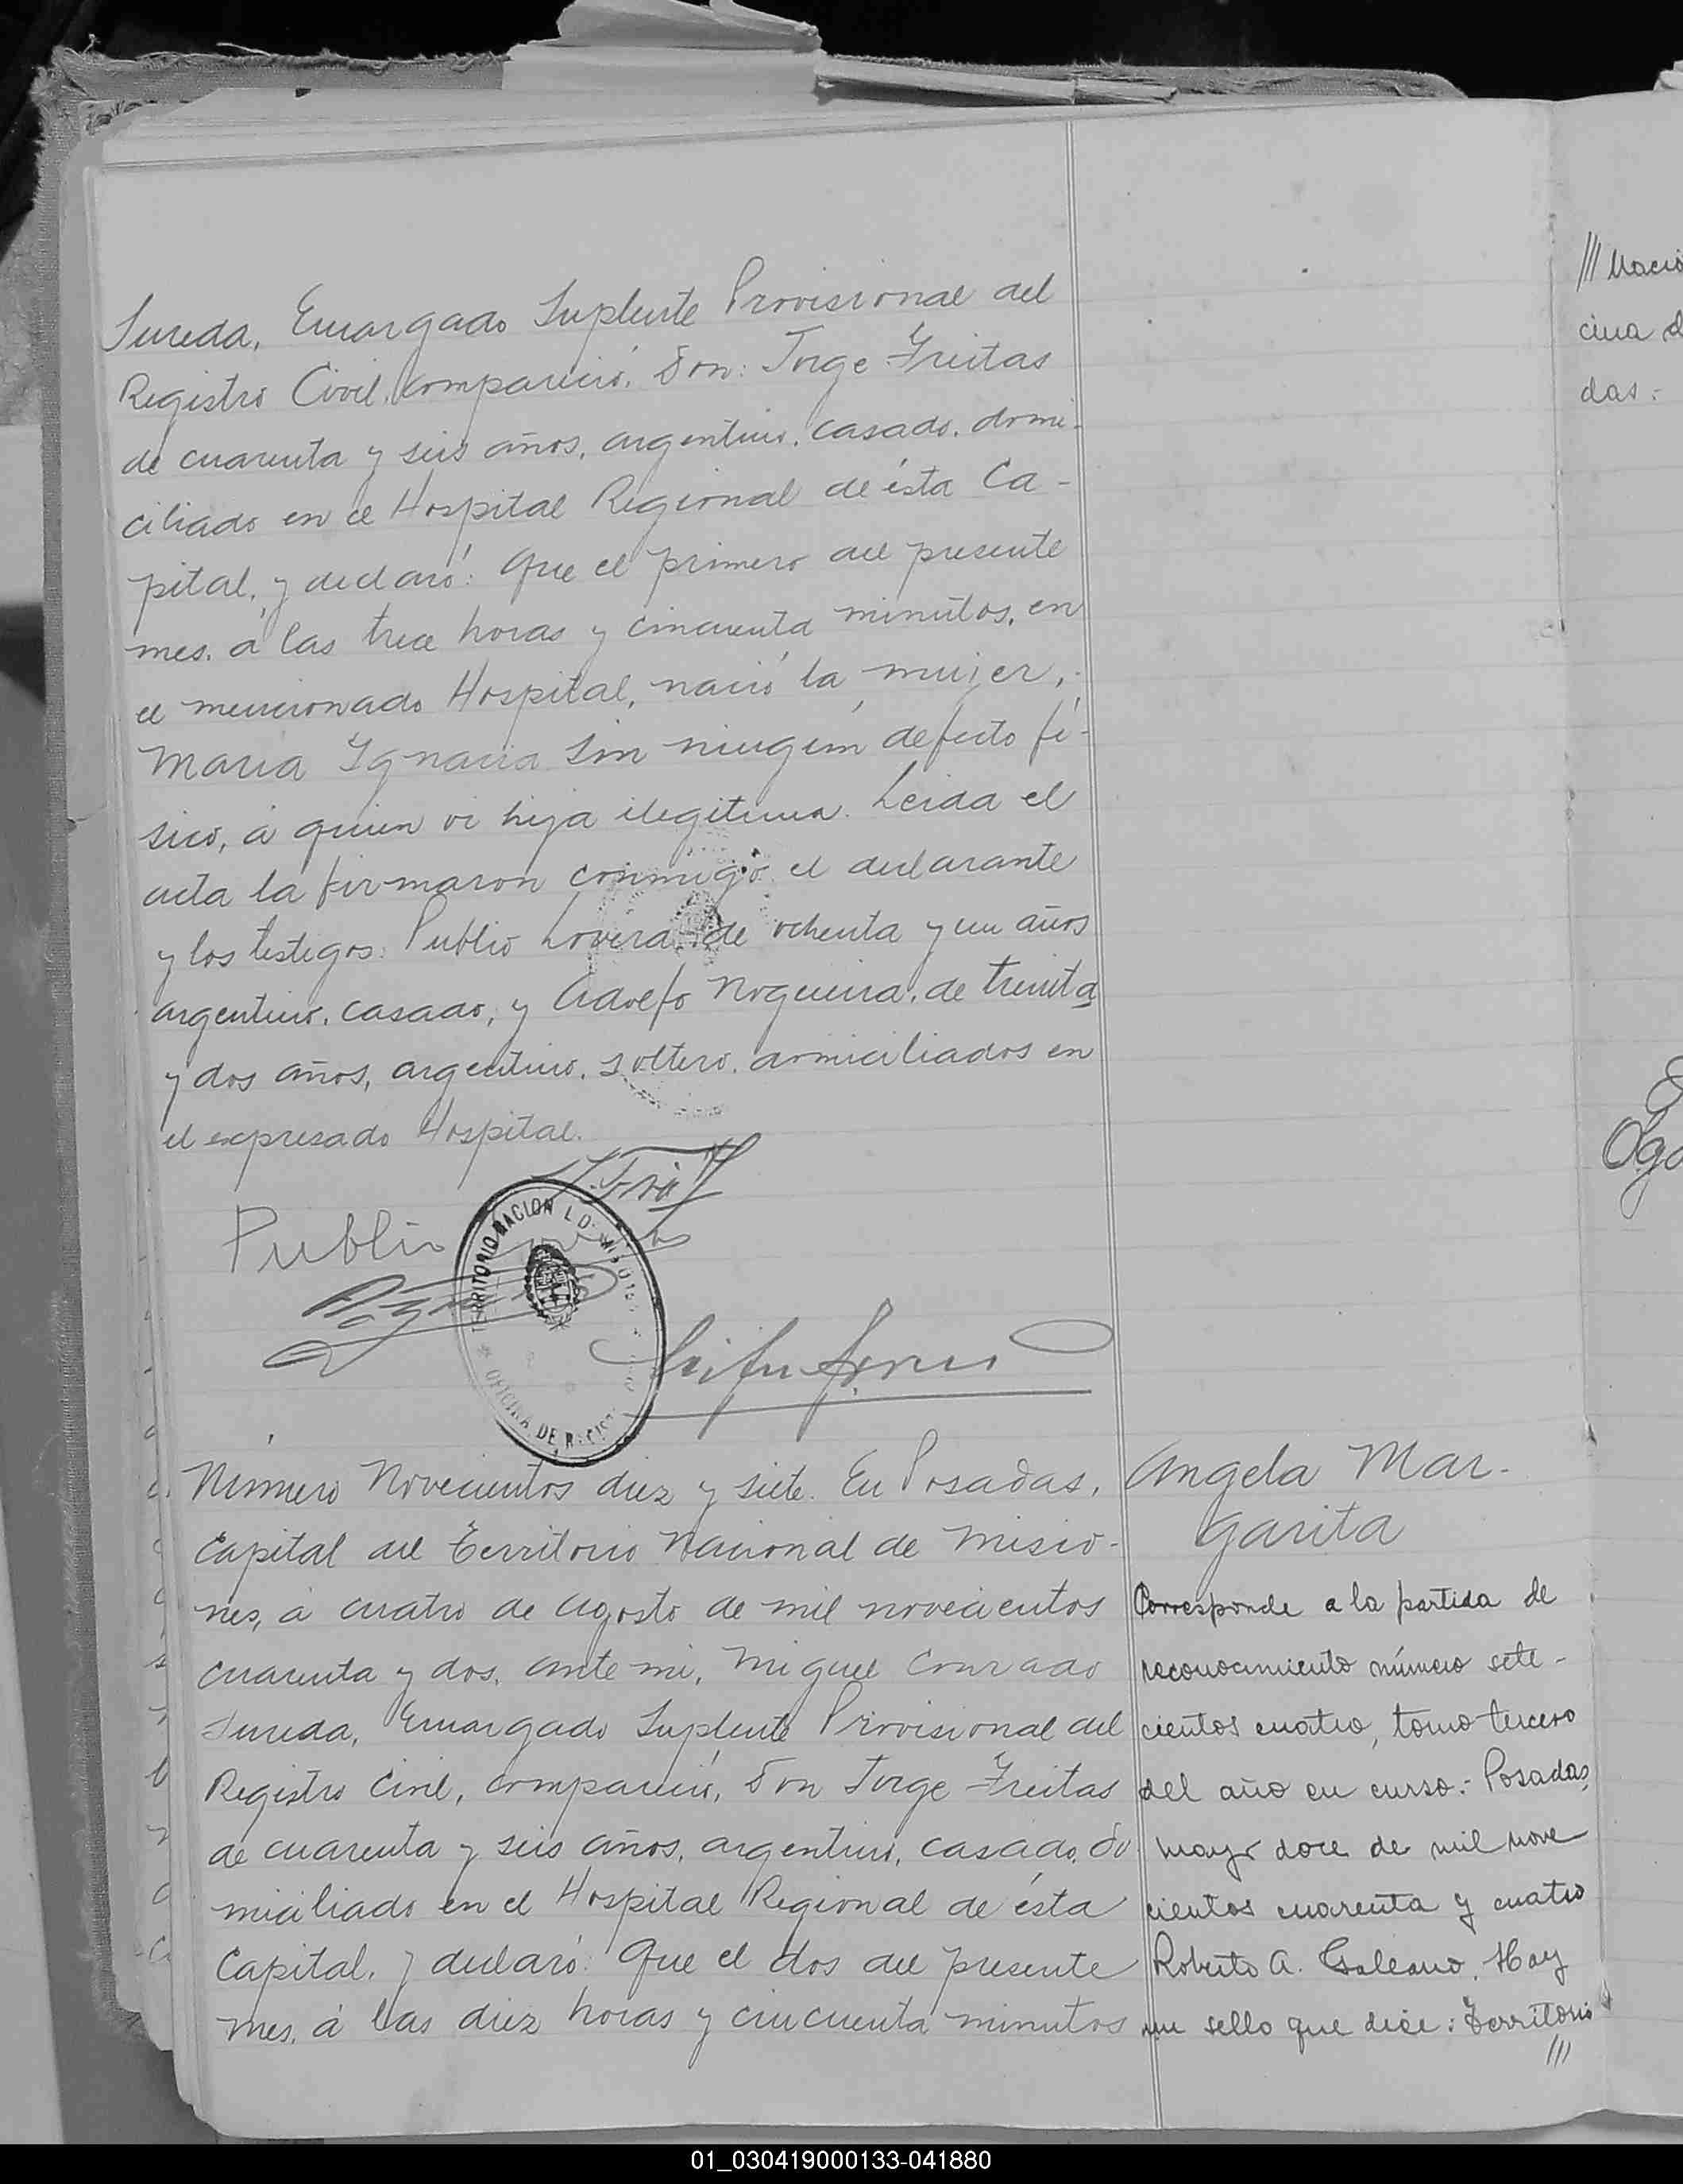 Sureda, Encargado Suplente Provisional del
Registro Civil, compareció, Don: Jorge Freitas
de cuarenta y seis años, argentino, casado, domi-
ciliado en el Hospital Regional de ésta Ca-
pital, y declaró: Que el primero del presente
mes, á las trece horas y cincuenta minutos, en
el mencionado Hospital, nació la mujer,
Maria Ignacia sin ningún defecto fí-
sico, á quien vi hija ilegitima. Leida el
acta la firmaron conmigo el declarante
y los testigos: Publio Lovera, de ochenta y un años
argentino, casado, y Adolfo Nogueira, de treinta
y dos años, argentino, soltero, domiciliados en
el expresado Hospital.
Publio
TERRITORIO NACIONAL DE MISIONES
OFICINA DE
Número Novecientos diez y siete. En Posadas,
Capital del Territorio Nacional de Misio-
nes, á cuatro de Agosto de mil novecientos
cuarenta y dos, ante mi, Miguel Conrado
Sureda, Encargado Suplente Provisional del
Registro Civil, compareció, Don Jorge Freitas
de cuarenta y seis años, argentino, casado, do
miciliado en el Hospital Regional de ésta
Capital, y declaró: Que el dos del presente
mes, á las diez horas y cincuenta minutos
Angela Mar-
garita
Corresponde a la partida de
reconocimiento número sete-
cientos cuatro, tomo tercero
del año en curso:- Posadas,
mayo doce de mil nove
cientos cuarenta y cuatro
Roberto A. Galeano. Hay
un sello que dice: Territorio
///
/// Nacio
cina d
das:
01_030419000133-041880